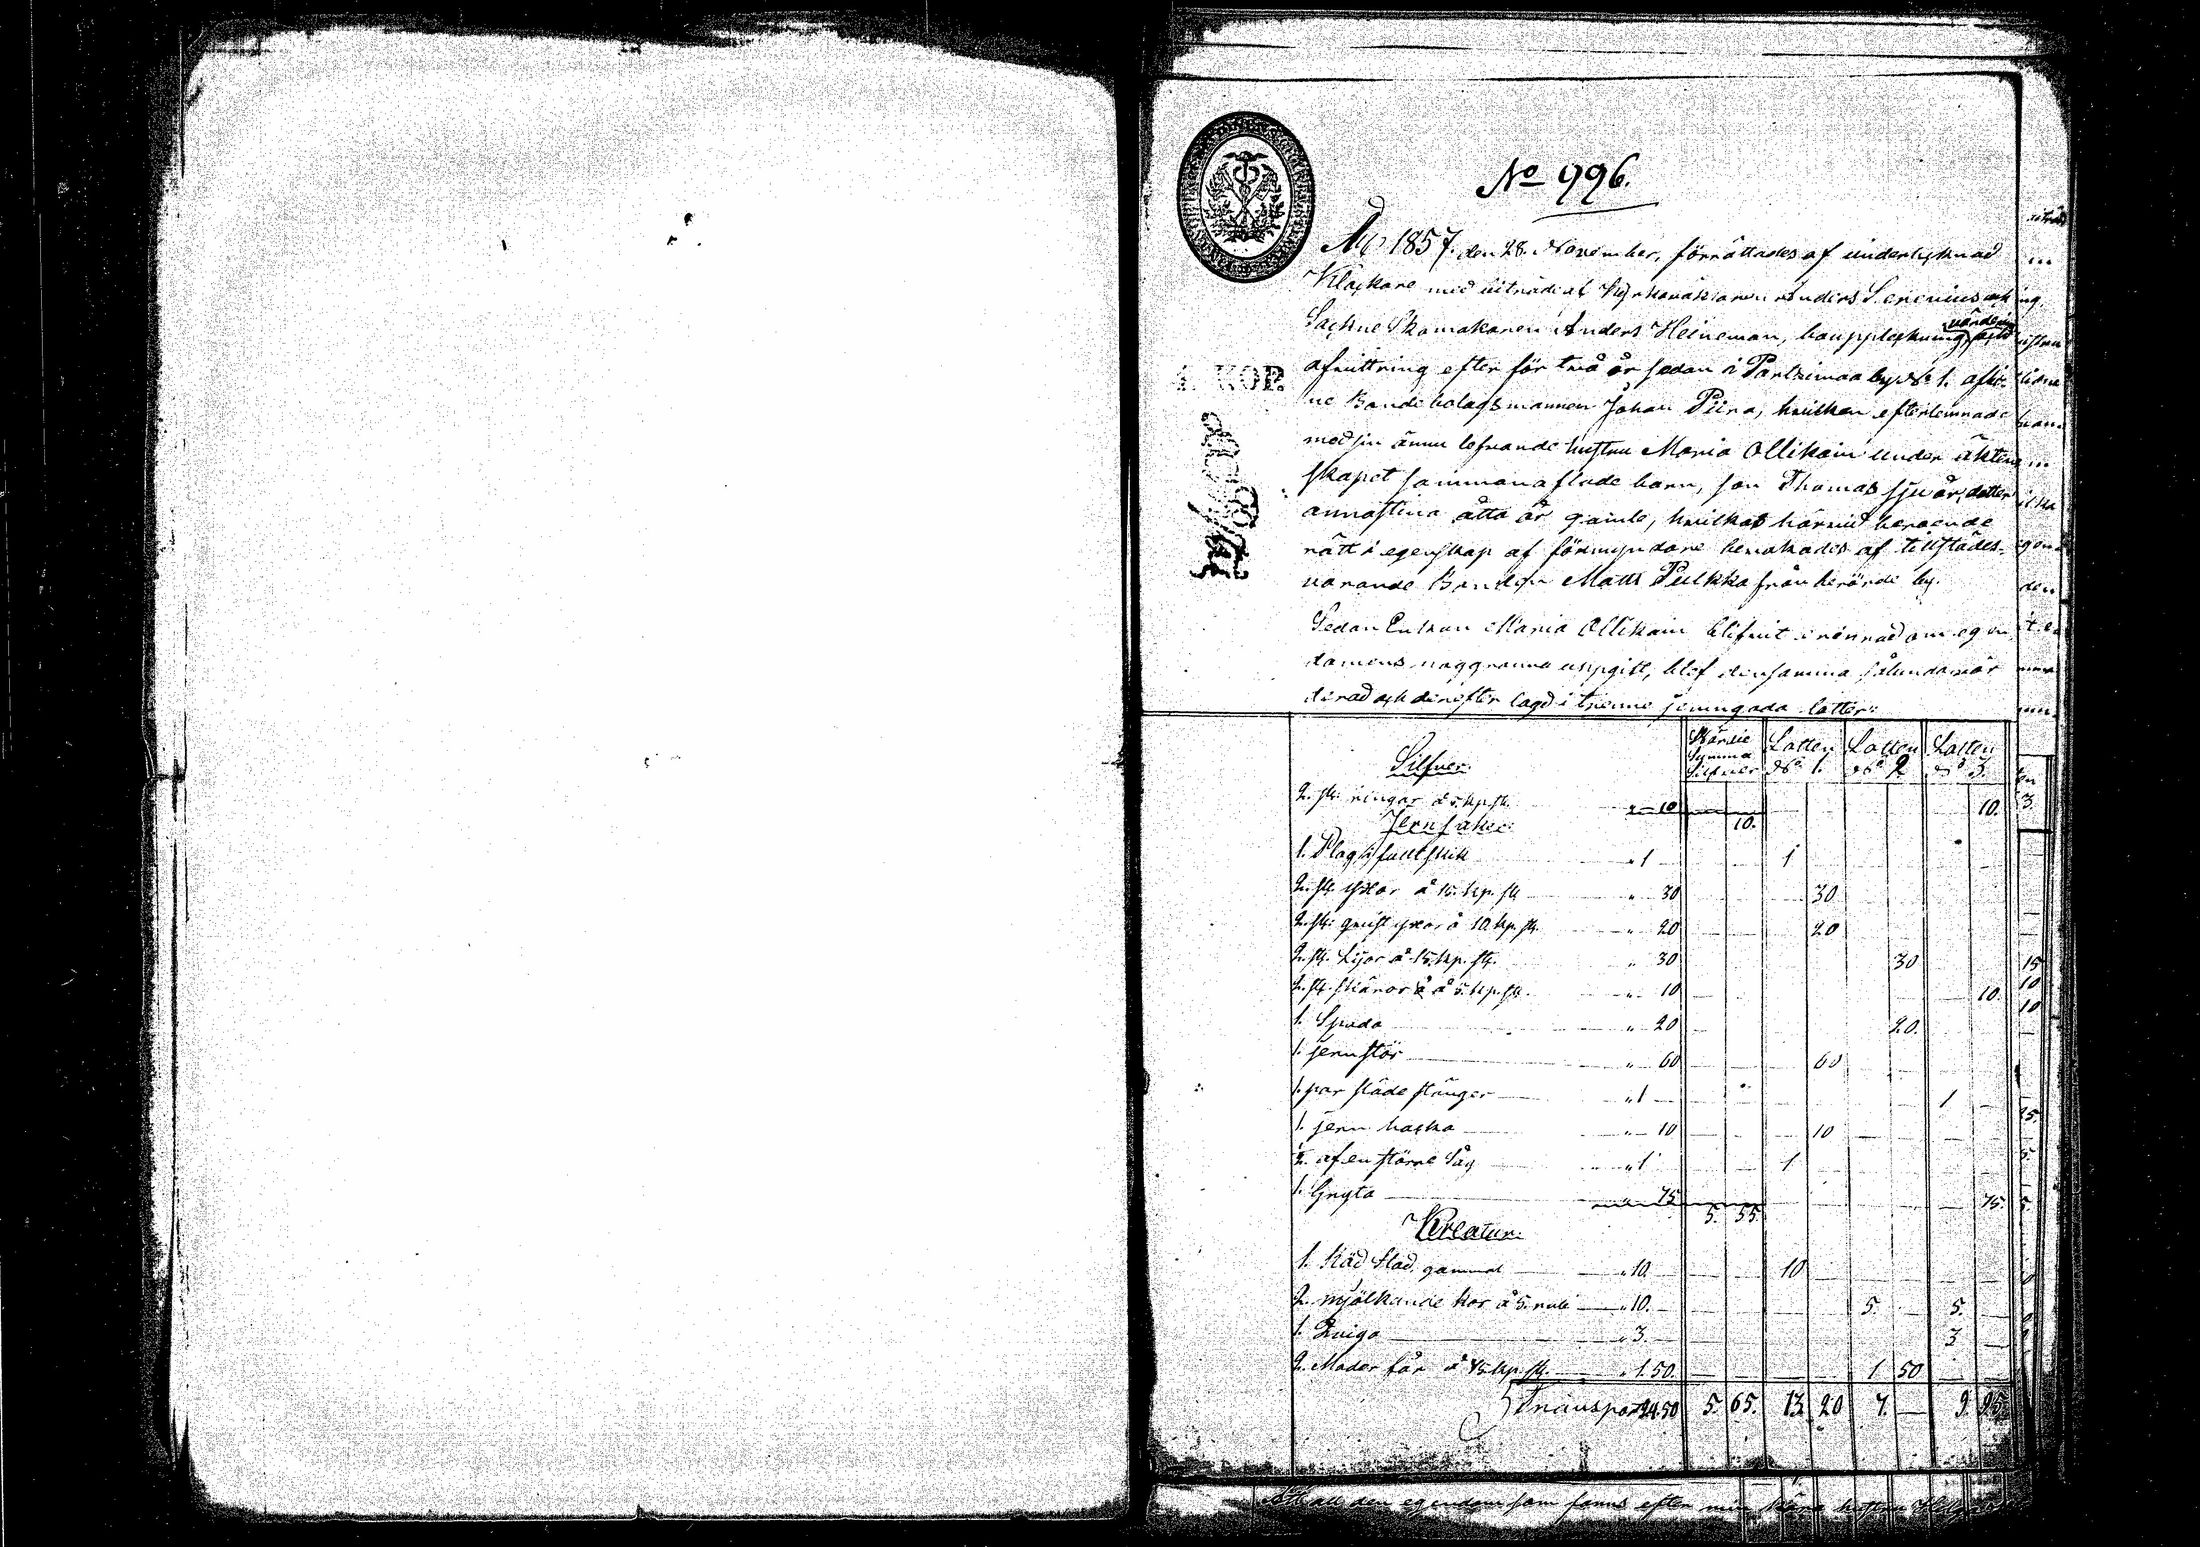 No 996.
År 1857. den 28. November, förrättades af undertecknad
Klåckare med biträde af Kyrkovaktaren Anders Serenius och
Sockne Skomakaren Anders Heineman, bouppteckning, värdering samt
4. KOP.
afvittring efter för två år sedan i Partsimaa by No 1. aflid-
ne Bonde bolagsmannen Johan Piira, hvilken efterlemnade
med sin ännu lefvande hustru Maria Ollikain under äkten
skapet sammanaflade barn, son Thomas sju år, dotter
annastina åtta år gamle, hvilkas härvid beroende
rätt i egenskap af förmyndare bevakades af tillstädes-
varande Bonden Matts Pulkka från berörde by.
Sedan Enkan Maria Ollikain blifvit i rönnad om egen
domens noggranna uppgift, blef densamma sålunda vär
derad och derefter lagd i trenne jemngoda lotter:
Silfver.
Summa Silfver
Lotten No 1.
Lotten No 2
Lotten No 3.
2. st. ringar à 5. kp. st. " 10 10.
Jernsaker: 10.
1. Plog i fullt skik " 1 1
2. st. yxor à 15. kp. st. " 30 30
2. st. qvist yxor à 10. kp. st. " 20 20
2. st. Lijor à 15. kp. st. " 30 30
2. st. skäror à à 5. kp. st. " 10 10.
1. Spada " 20 20.
1. jernstör " 60 60
1. par släde stänger " 1 1
1. jern hacka " 10 10
½ af en större Såg " 1 1
1. Gryta " 75 75.
5. 55.
Kreatur:
1. Röd Stod, gammal " 10. 10
2. mjölkande kor à 5. rubl " 10. 5. 5.
1. Qviga " 3. 3
2. Moder får à 75. kp. st. " 1.50. 1 50
Transport 24.50 5. 65. 13. 20 7. 9. 95.
all den egendom som fanns efter min hustru